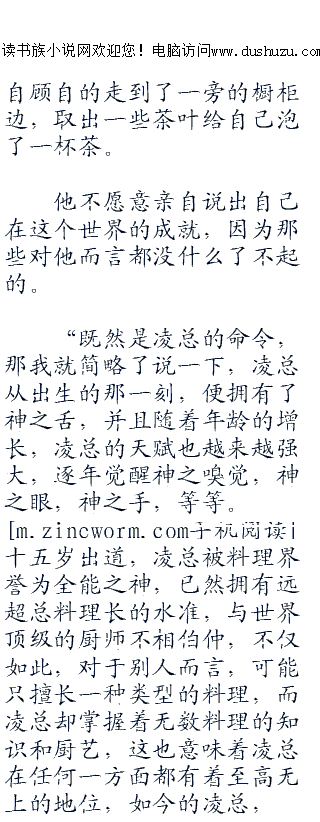 读书族小说网欢迎您！电脑访问www.dushuzu.com
自顾自的走到了一旁的橱柜
边，取出一些茶叶给自己泡
了一杯茶。
他不愿意亲自说出自己
在这个世界的成就，因为那
些对他而言都没什么了不起
的。
“既然是凌总的命令，
那我就简略了说一下，凌总
从出生的那一刻，便拥有了
神之舌，并且随着年龄的增
长，凌总的天赋也越来越强
大，逐年觉醒神之嗅觉，神
之眼，神之手，等等。
[m.zincworm.com手机阅读]
十五岁出道，凌总被料理界
誉为全能之神，已然拥有远
超总料理长的水准，与世界
顶级的厨师不相伯仲，不仅
如此，对于别人而言，可能
只擅长一种类型的料理，而
凌总却掌握着无数料理的知
识和厨艺，这也意味着凌总
在任何一方面都有着至高无
上的地位，如今的凌总，